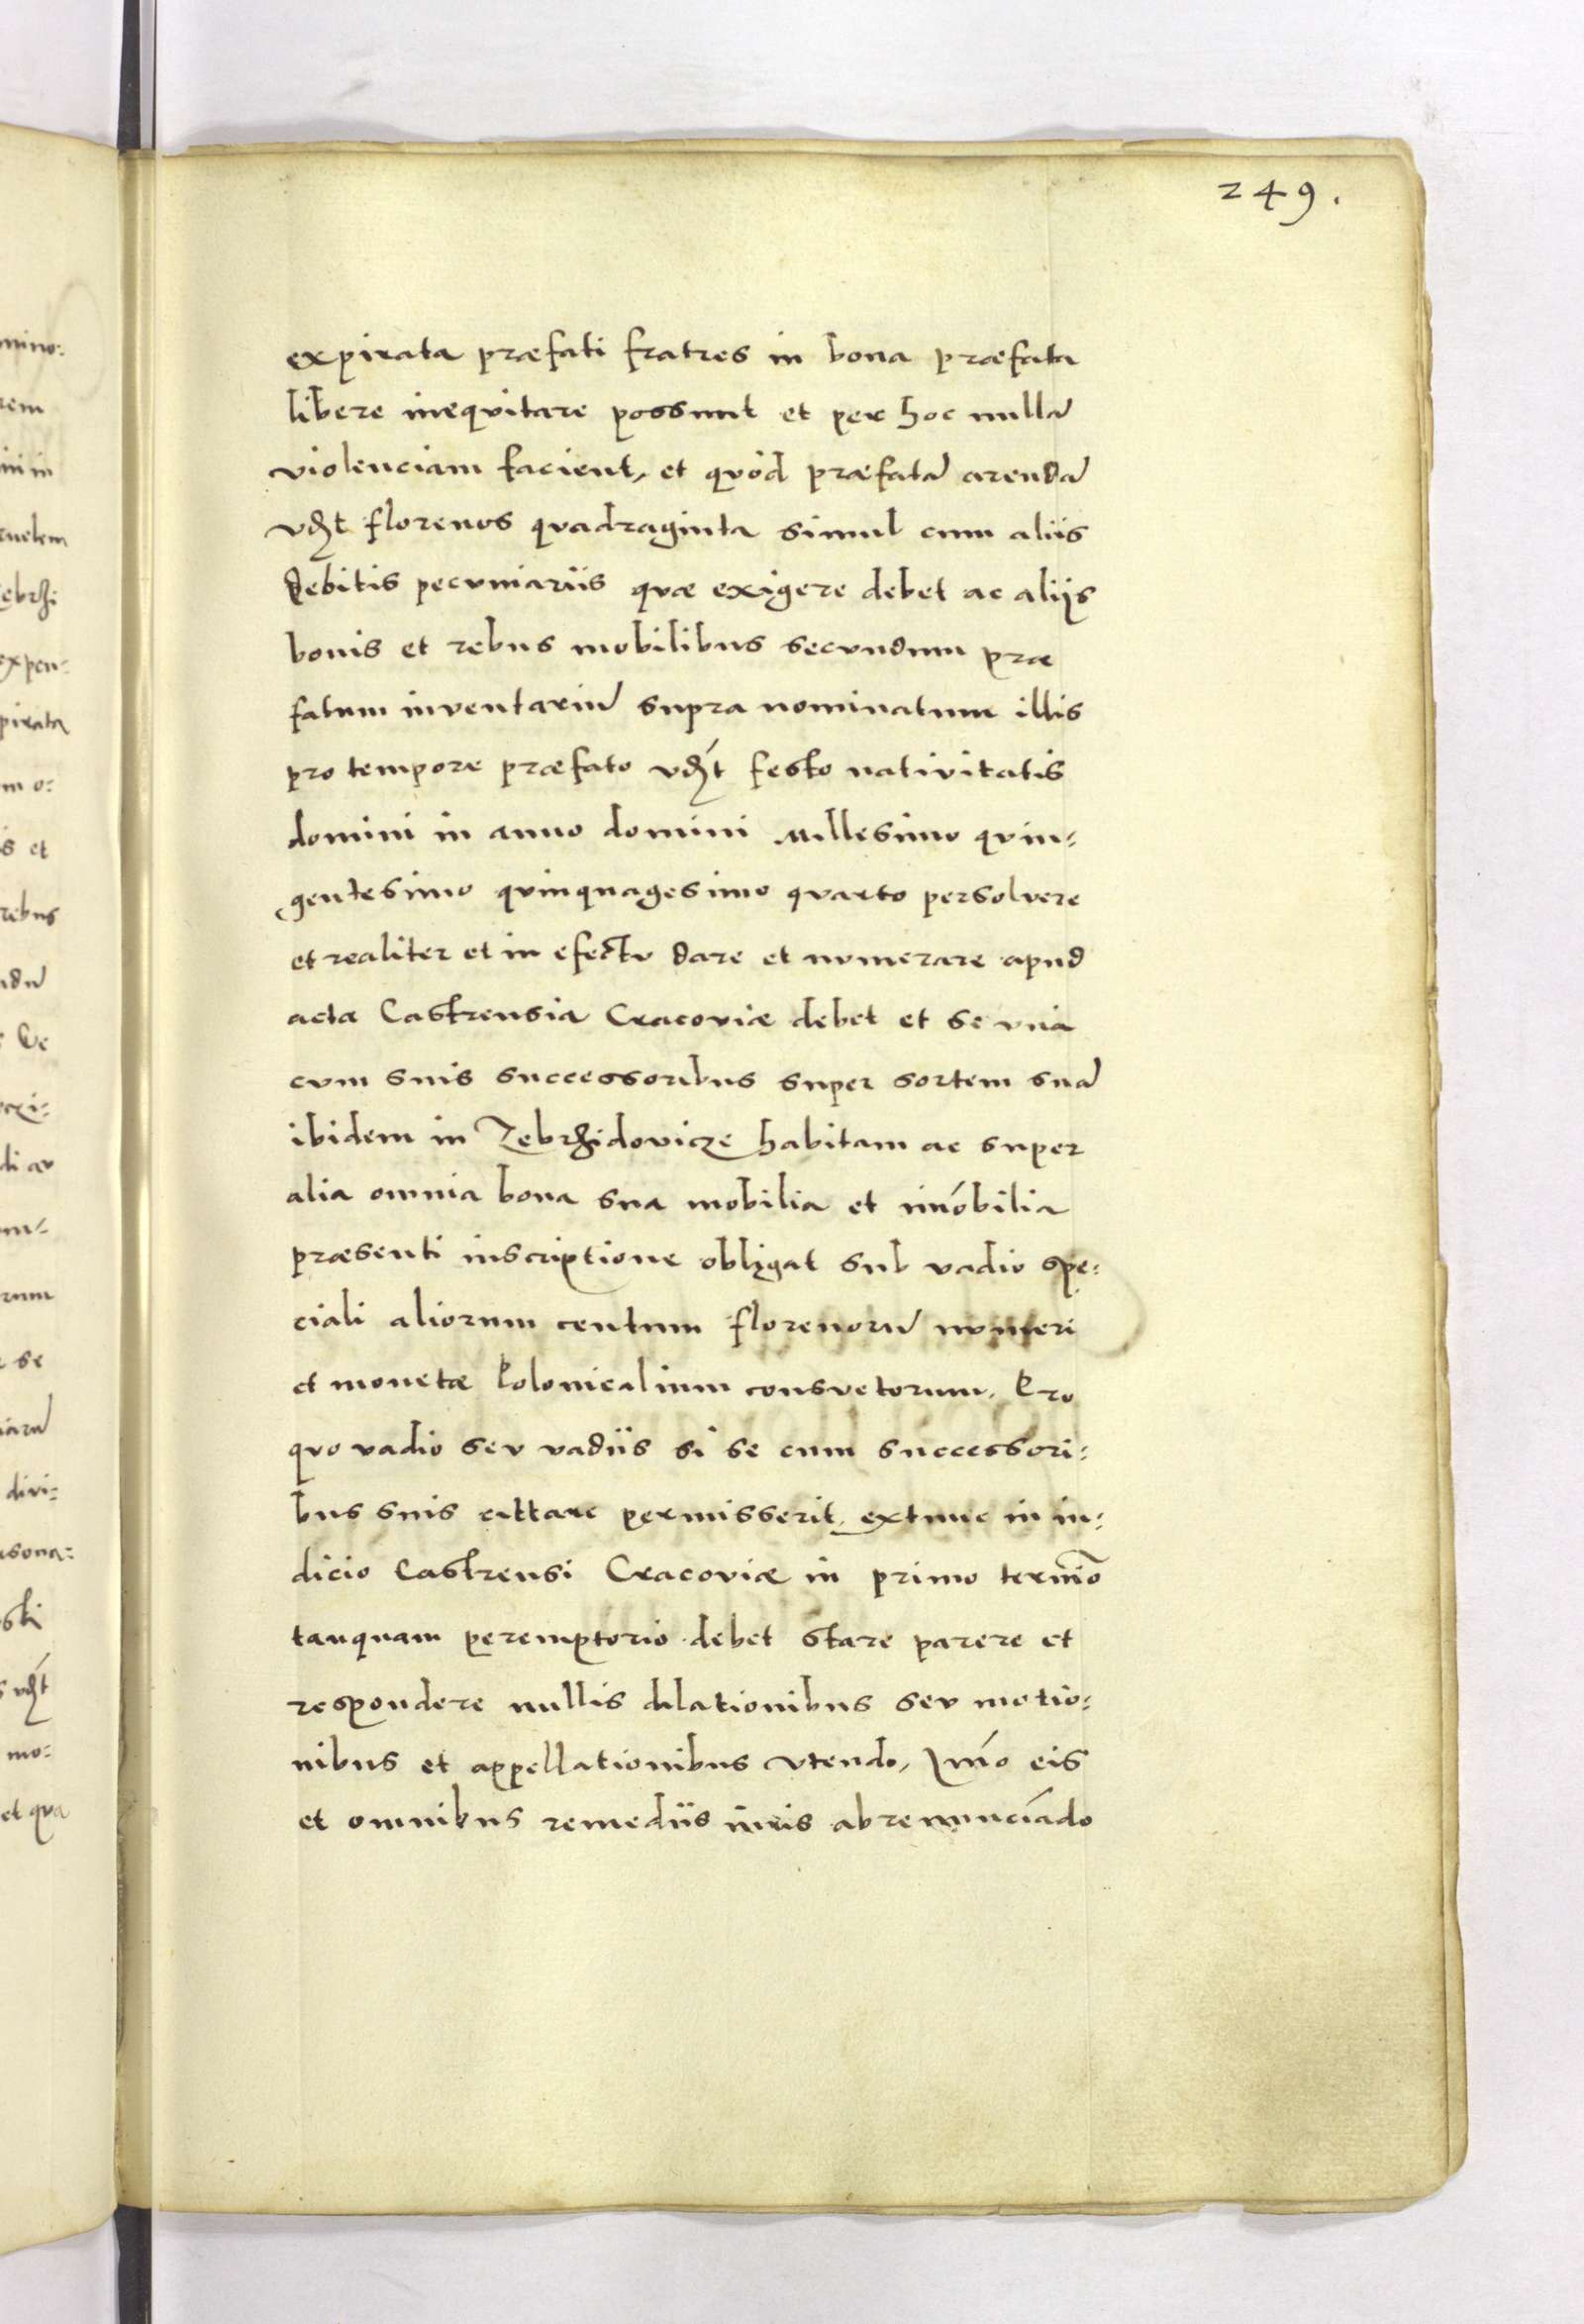 249.
expirata præfati fratres in bona præfata
libere inequitare possunt et per hoc nullā
violenciam facient, et quòd præfatā arendā
vdzt florenos quadraginta simul cum aliis
debitis pecuniariis quæ exigere debet ac aliis
bonis et rebus mobilibus secundum præ
fatum inventariū supra nominatum illis
pro tempore præfato vdzt festo nativitatis
domini in anno domini Millesimo quin=
gentesimo quinquagesimo quarto persolvere
et realiter et in efectu dare et numerare apud
acta Castrensia Cracoviæ debet et se una
cum suis successoribus super sortem suā
ibidem in Zebrzidovicze habitam ac super
alia omnia bona sua mobilia et im̄obilia
præsenti inscriptione obligat sub vadio spe=
ciali aliorum centum florenorū numeri
et monetæ Polonicalium consuetorum. Pro
quo vadio seu vadiis si se cum successori=
bus suis cittare permisserit, extunc in iu=
dicio Castrensi Cracoviæ in primo termīo
tanquam peremptorio debet stare parere et
respondere nullis dilationibus seu motio=
nibus et appellationibus utendo, Im̄o eis
et omnibus remediis iuris abrenunciādo
mino:
rem
ebrzi
expen=
pirata
m o:
is et
rebus
De
rum
se
divi=
sona=
ski
vdzt
mo=
et qua